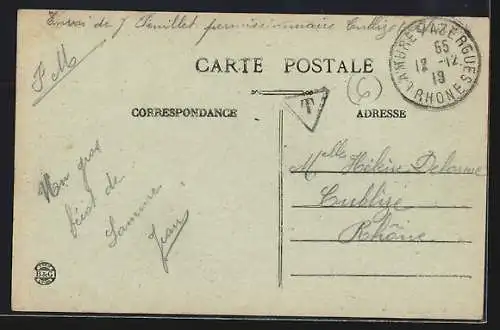 Envoi de J Feuillet permissionnaire Cublize
F M
LAMURE-S-AZERGUES
65
12 -12
19
RHONE
CARTE POSTALE
T
6
CORRESPONDANCE
ADRESSE
Mon gros
bécot de
Lamure
Jean
Melle Hélène Delorme
Cublize
Rhône
B&G